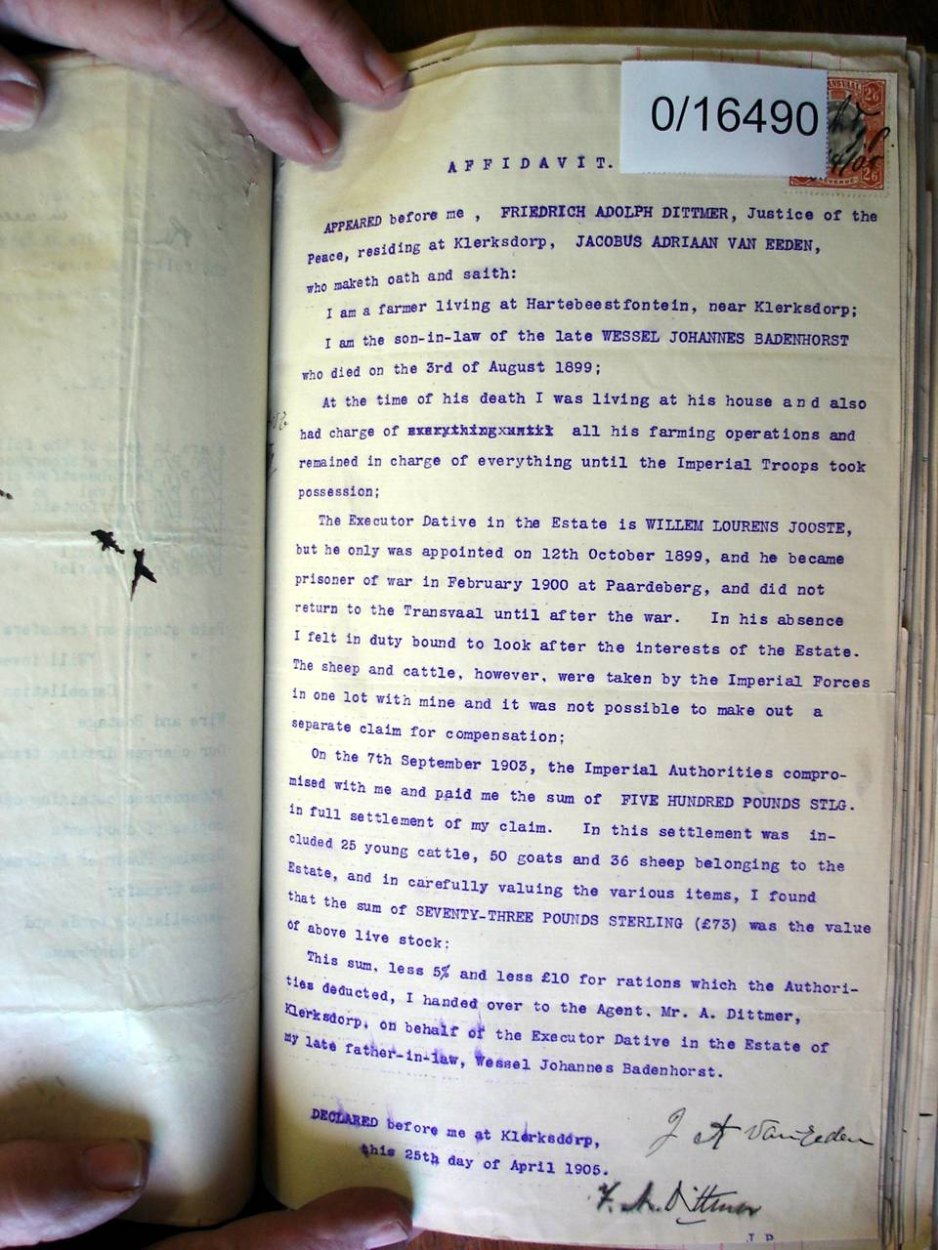 0/16490
TRANSVAAL
2/6
2/6
AFFIDAVIT.
APPEARED before me , FRIEDRICH ADOLPH DITTMER, Justice of the
Peace, residing at Klerksdorp, JACOBUS ADRIAAN VAN EEDEN,
who maketh oath and saith:
I am a farmer living at Hartebeestfontein, near Klerksdorp;
I am the son-in-law of the late WESSEL JOHANNES BADENHORST
who died on the 3rd of August 1899;
At the time of his death I was living at his house and also
had charge of all his farming operations and
remained in charge of everything until the Imperial Troops took
possession;
The Executor Dative in the Estate is WILLEM LOURENS JOOSTE,
but he only was appointed on 12th October 1899, and he became
prisoner of war in February 1900 at Paardeberg, and did not
return to the Transvaal until after the war. In his absence
I felt in duty bound to look after the interests of the Estate.
The sheep and cattle, however, were taken by the Imperial Forces
in one lot with mine and it was not possible to make out a
separate claim for compensation;
On the 7th September 1903, the Imperial Authorities compro-
mised with me and paid me the sum of FIVE HUNDRED POUNDS STLG.
in full settlement of my claim. In this settlement was in-
cluded 25 young cattle, 50 goats and 36 sheep belonging to the
Estate, and in carefully valuing the various items, I found
that the sum of SEVENTY-THREE POUNDS STERLING (£73) was the value
of above live stock:
This sum, less 5% and less £10 for rations which the Authori-
ties deducted, I handed over to the Agent. Mr. A. Dittmer,
Klerksdorp, on behalf of the Executor Dative in the Estate of
my late father-in-law, Wessel Johannes Badenhorst.
DECLARED before me at Klerksdorp,
this 25th day of April 1905.
J A Van Eeden
F. A. Dittmer
J P